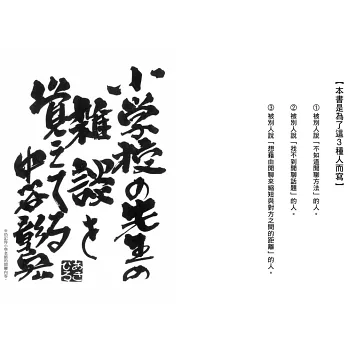 【本書是為了這3種人而寫】
① 被別人說「不知道閒聊方法」的人。
② 被別人說「找不到閒聊話題」的人。
③ 被別人說「想藉由閒聊來縮短與對方之間的距離」的人。
小学校の先生の
雑談を
覚えてる
中谷彰宏
あき
ひろ